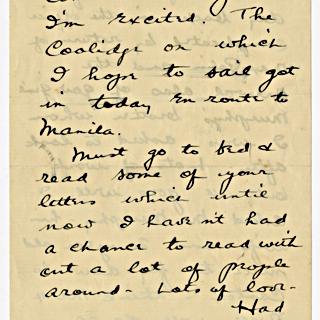 I'm excited. The
Coolidge on which
I hope to sail got
in today en route to
Manila.
Must go to bed &
read some of your
letters which until
now I haven't had
a chance to read with
out a lot of people
around - Lots of love -
Had